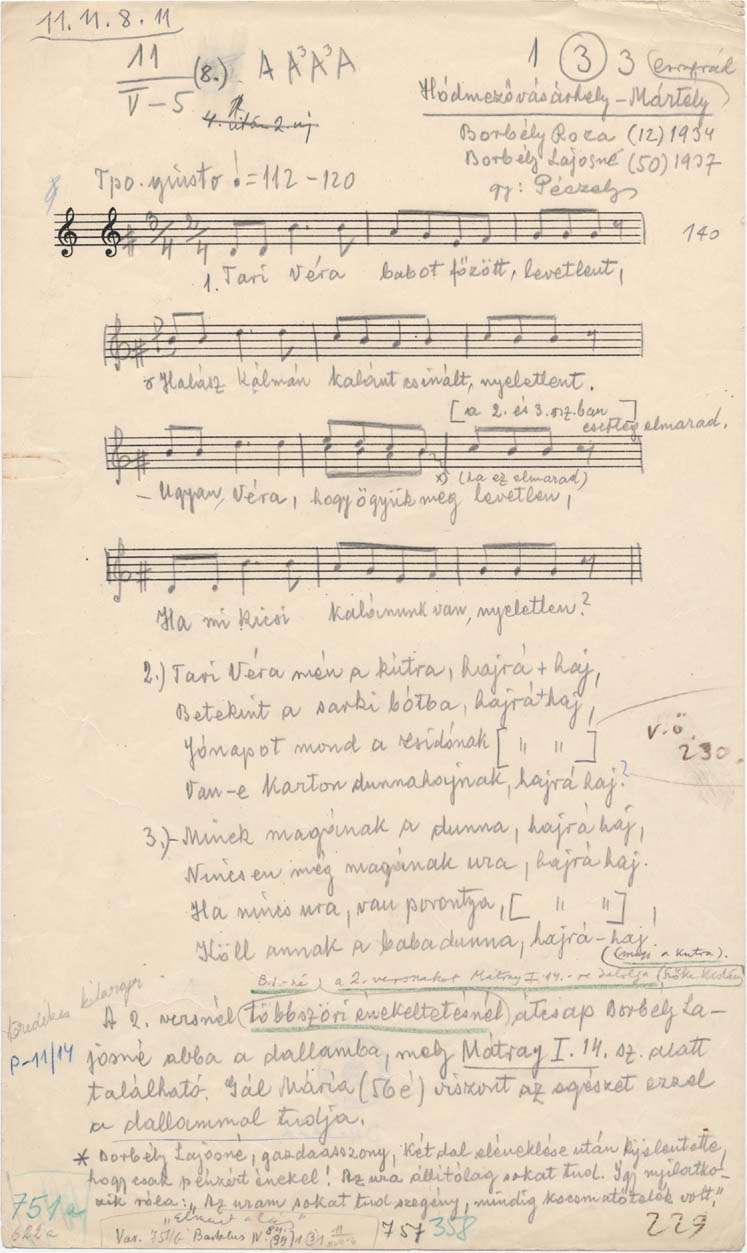 11. 11. 8. 11
11 (8.) A A³ A³ A 1 3 3
V-5
4. után 2. új
Hódmezővásárhely – Mártély
Borbély Roza (12) 1934
Borbély Lajosné (50) 1937
gy: Péczely
Tpo. giusto = 112 – 120
3/4 2/4
140
1. Tari Véra babot főzött, levetlent,
Halász Kálmán kalánt csinált, nyeletlent.
[a 2. és 3. vsz.ban]
esetleg elmarad.
x) (ha ez elmarad)
– Ugyan, Véra, hogy ögyük meg levetlen,
Ha mi kicsi kalánunk van, nyeletlen?
2.) Tari Véra mén a kútra, hajrá + haj,
Betekint a sarki bótba, hajrá + haj,
Jónapot mond a zsidónak [ " " ]
Van-e karton dunnahajnak, hajrá haj?
v.ö.
230.
3.) – Minek magának a dunna, hajrá haj,
Nincsen még magának ura, hajrá haj.
Ha nincs ura, van porontya, [ " " ],
Köll annak a babadunna, hajrá – haj.
(megy a kutra).
B.L.-né a 2. versszakot Mátray I. 14.-re dalolja
A 2. versnél (többszöri énekeltetésnél) átcsap Borbély La-
josné abba a dallamba, mely Mátray I. 14. sz. alatt
található. Gál Mária (56 é) viszont az egészet ezzel
a dallammal tudja.
P-11/14
* Borbély Lajosné, gazdaasszony, két dal eléneklése után kijelentette,
hogy csak pénzért énekel! Az ura állítólag sokat tud. Így nyilatko-
zik róla: „Az uram sokat tud szegény, mindig kocsmatötelék vott."
751a
622a
Var. 751/b Bartalus IV.
757 358
229